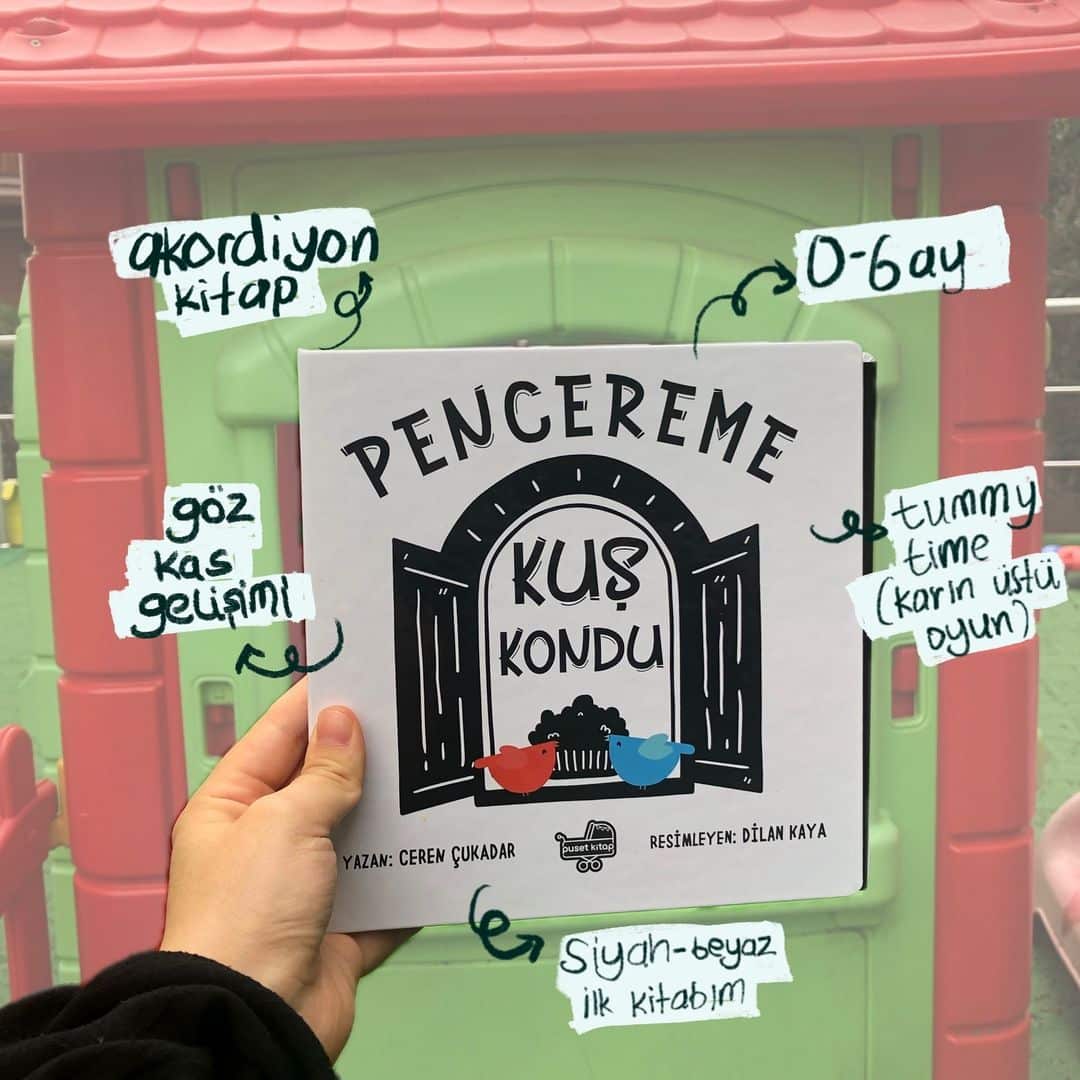 akordiyon
kitap
0-6 ay
PENCEREME
KUŞ
KONDU
göz
kas
gelişimi
tummy
time
(karın üstü
oyun)
YAZAN: CEREN ÇUKADAR
puset kitap
RESİMLEYEN: DİLAN KAYA
Siyah-beyaz
ilk kitabım